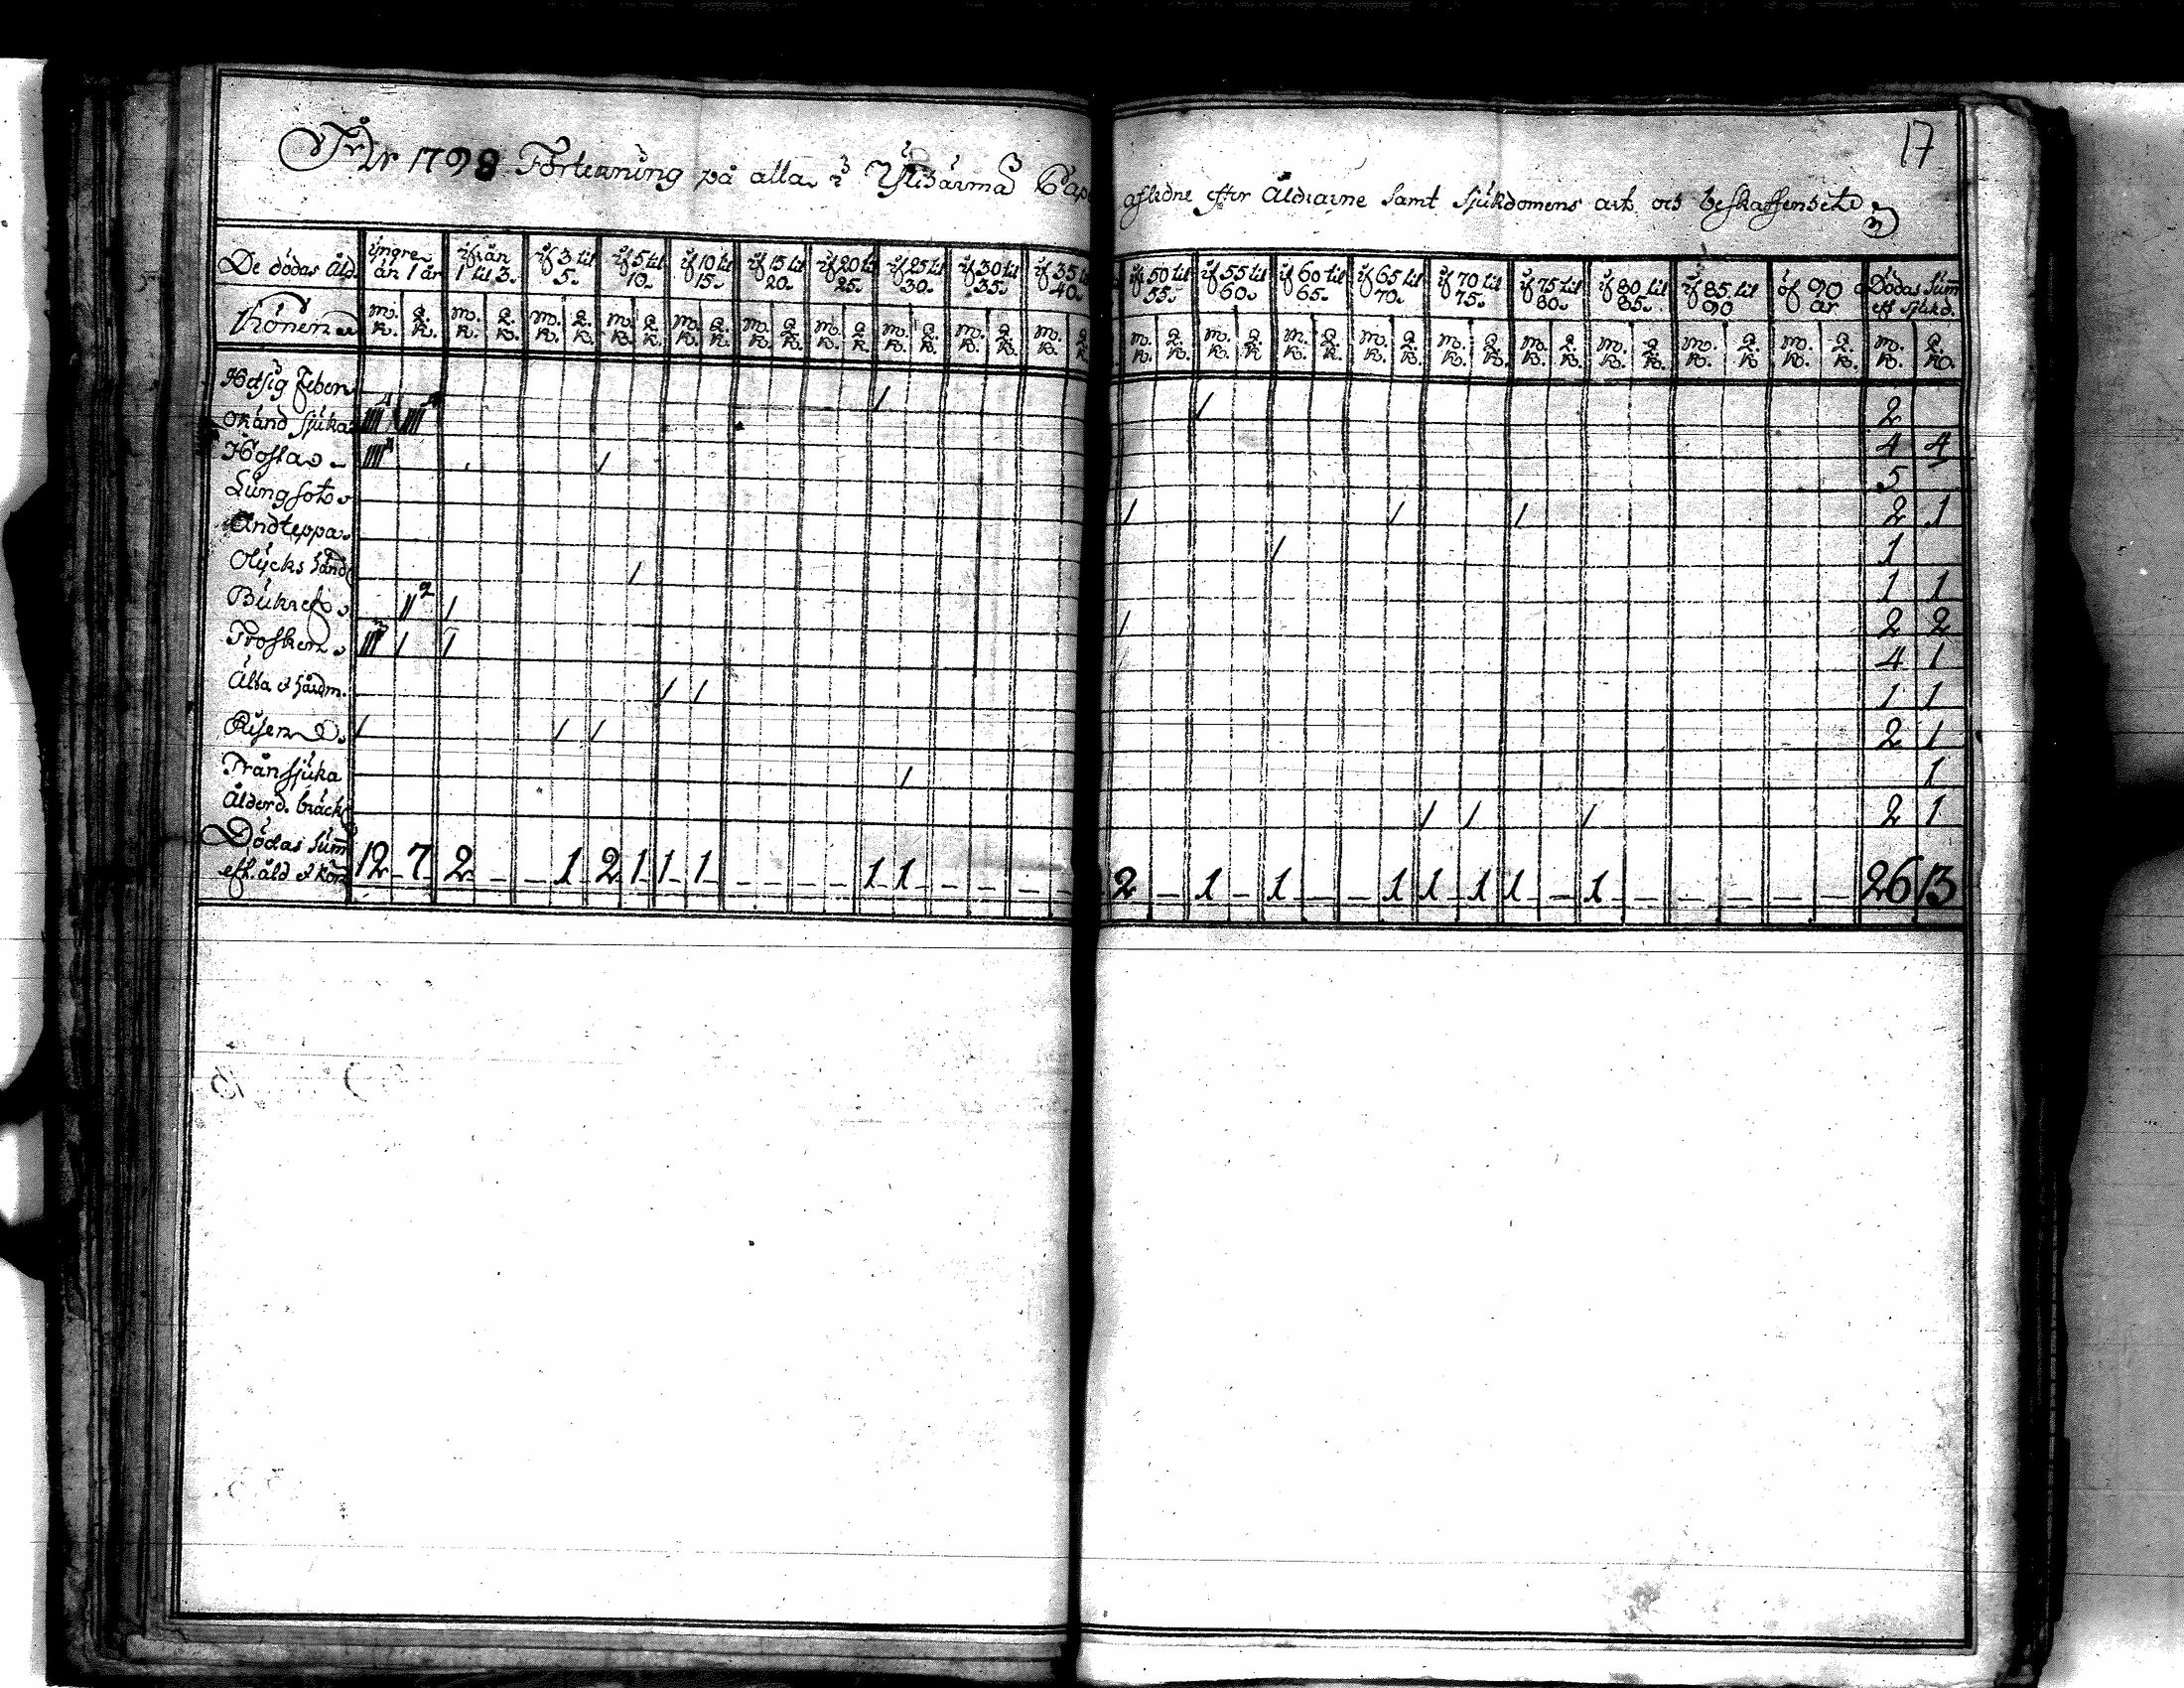 17
År 1798 Förtekning på alla i Ylihärmä Cap afledne efter Åldrarne samt sjukdomens art och beskaffenhet
De dödas Åld yngre än 1 år ifrån 1 til 3. if 3 til 5. if 5 til 10. if 10 til 15. if 15 til 20. if 20 til 25. if 25 til 30. if 30 til 35. if 35 til 40. if 50 til 55. if 55 til 60. if 60 til 65. if 65 til 70. if 70 til 75. if 75 til 80. if 80 til 85. if 85 til 90 öf 90 år Dödas Sum eft sjukd.
Könen m. k. q. k. m. k. q. k. m. k. q. k. m. k. q. k. m. k. q. k. m. k. q. k. m. k. q. k. m. k. q. k. m. k. q. k. m. k. q. k. m. k. q. k. m. k. q. k. m. k. q. k. m. k. q. k. m. k. q. k. m. k. q. k. m. k. q. k. m. k. q. k. m. k. q. k. m. k. q. k.
Hetsig feber / / 2
Okänd sjuka //// 4 //// 4 4 4
Hosta //// 4 / 5
Lungsot / / / 2 1
Andteppa / 1
Olycks händ / 1 1
Bukref // 2 / / 2 2
Trosken /// 3 / / 4 1
Älta o hårdm. / / 1 1
Risen / / / 2 1
Trånsjuka / 1
Ålderd. bräck / / / 2 1
Dödas Sum eft. åld o kön 12 7 2 _ _ 1 2 1 1 1 _ _ _ _ 1 1 _ _ _ 2 _ 1 _ 1 _ _ 1 1 1 1 _ 1 _ _ _ _ _ 26 13